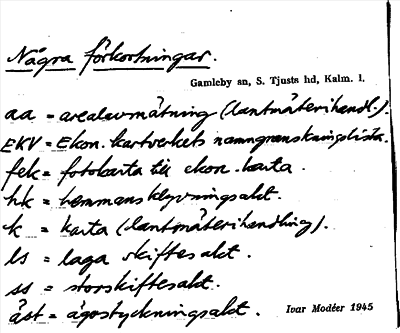 Några förkortningar.
Gamleby sn, S. Tjusts hd, Kalm. l.
aa = arealavmätning (lantmäterihandl.).
EKV = Ekon. kartverkets namngranskningslista.
fek = fotokarta till ekon. karta.
hk = hemmansklyvningsakt.
k = karta (lantmäterihandling).
ls = laga skiftesakt.
ss = storskiftesakt.
äst = ägostyckningsakt.
Ivar Modéer 1945